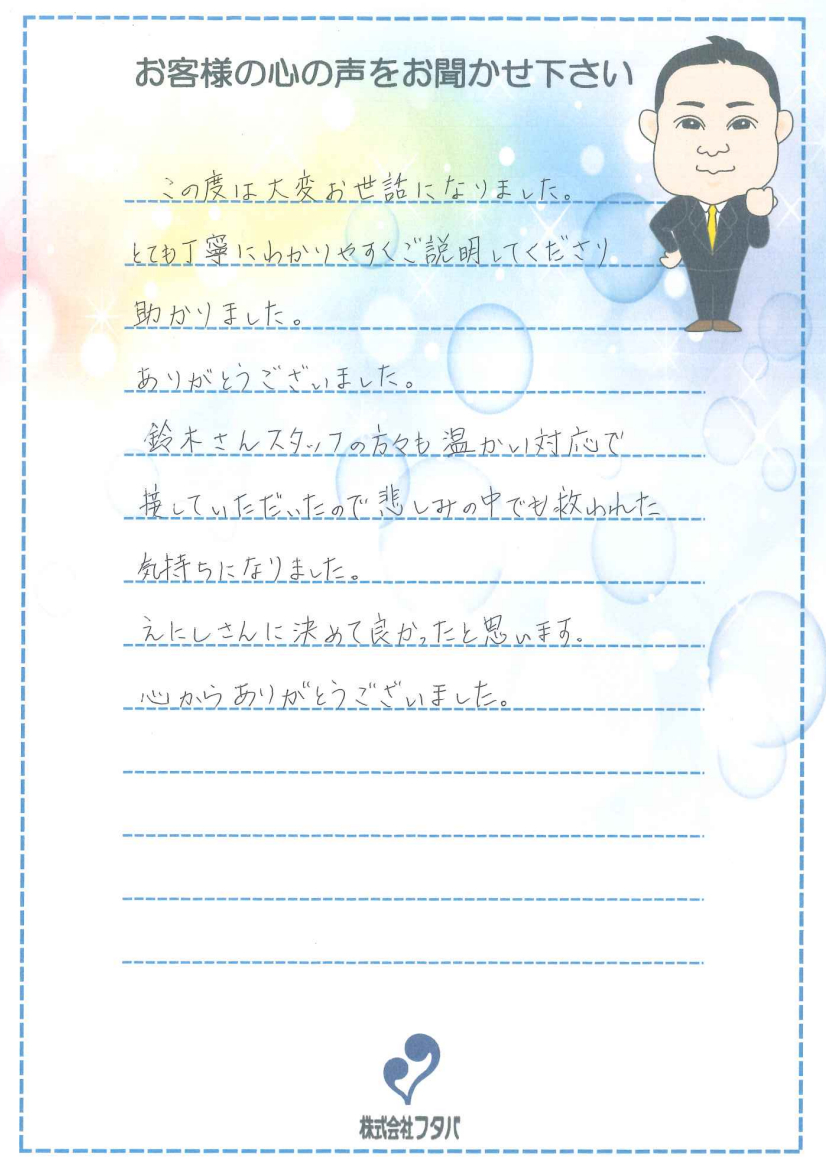 お客様の心の声をお聞かせ下さい
この度は大変お世話になりました。
とても丁寧にわかりやすくご説明してくださり
助かりました。
ありがとうございました。
鈴木さんスタッフの方々も温かい対応で
接していただいたので悲しみの中でも救われた
気持ちになりました。
えにしさんに決めて良かったと思います。
心からありがとうございました。
株式会社フタバ